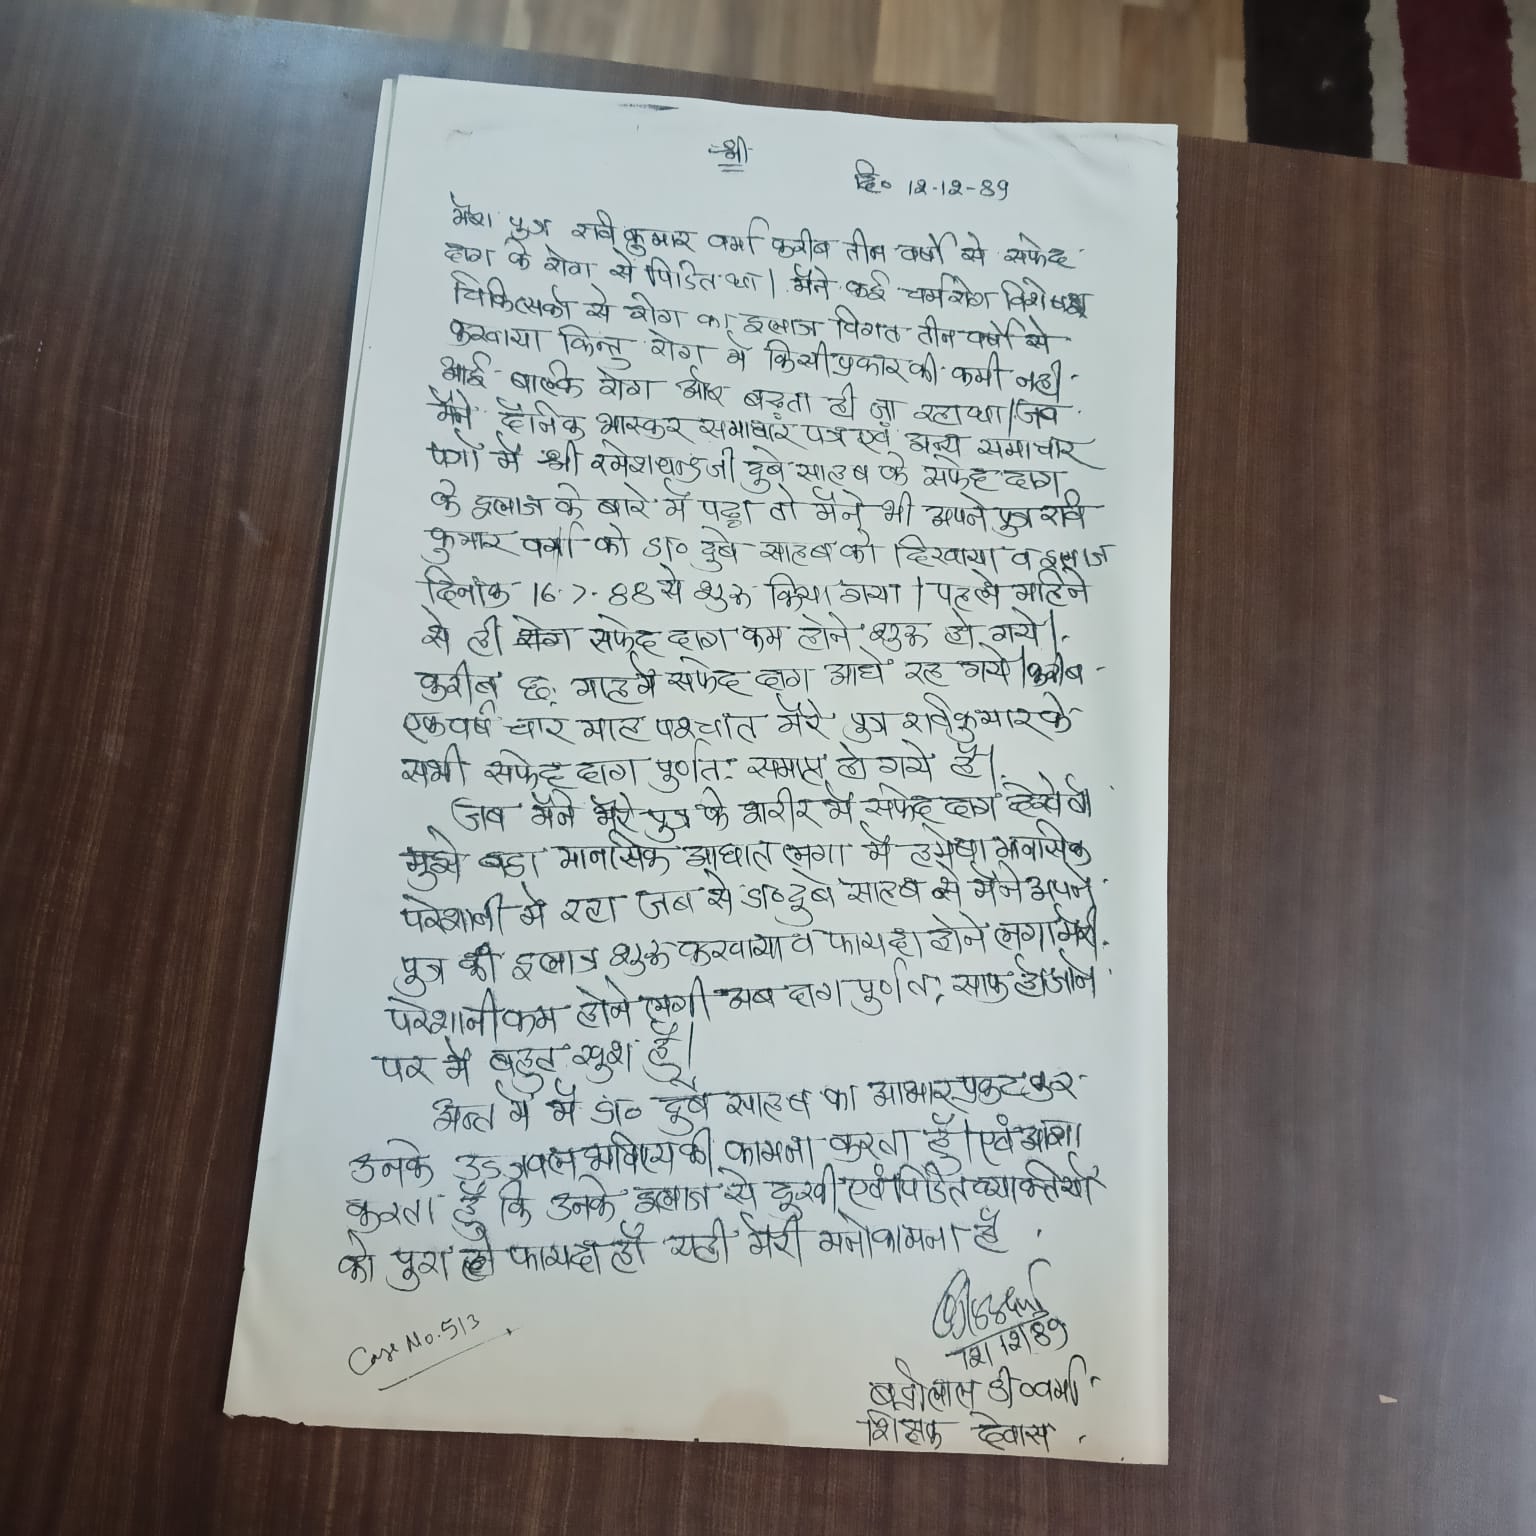 श्री
दि० 12-12-89
मेरा पुत्र रवि कुमार वर्मा करीब तीन वर्षो से सफेद
दाग के रोग से पिडित था। मैंने कई चर्मरोग विशेषज्ञ
चिकित्सकों से रोग का इलाज विगत तीन वर्षो से
करवाया किन्तु रोग मे किसी प्रकार की कमी नही
आई बाल्कि रोग और बढ़ता ही जा रहा था। जब
मैंने दैनिक भास्कर समाचार पत्र एवं अन्य समाचार
पत्रों में श्री रमेशचन्द्र जी दुबे साहब के सफेद दाग
के इलाज के बारे में पढ़ा तो मैंने भी अपने पुत्र रवि
कुमार वर्मा को डा० दुबे साहब को दिखाया व इलाज
दिनांक 16.7.88 से शुरू किया गया। पहले माहिने
से ही रोग सफेद दाग कम होने शुरू हो गये।
करीब छः माह में सफेद दाग आधे रह गये। करीब
एक वर्ष चार माह पश्चात मेरे पुत्र रविकुमार के
सभी सफेद दाग पुर्णतः समाप्त हो गये है।
जब मैंने मेरे पुत्र के शरीर में सफेद दाग देखे तो
मुझे बडा मानसिक आघात लगा में हमेशा मानसिक
परेशानी में रहा जब से डा० दुबे साहब से मैंने अपने
पुत्र की इलाज शुरू करवाया व फायदा होने लगा मेरी
परेशानी कम होने लगी अब दाग पुर्णतः साफ हो जाने
पर मैं बहुत खुश हूँ।
अन्त में मैं डा० दुबे साहब का आभार प्रकट कर
उनके उज्जवल भविष्य की कामना करता हूँ। एवं आशा
करता हूँ कि उनके इलाज से दुखी एवं पिडित व्यक्तियों
को पुरा ही फायदा हो यही मेरी मनोकामना है
12/12/89
बद्रीलाल डी० वर्मा
शिक्षक देवास
Case No. 513